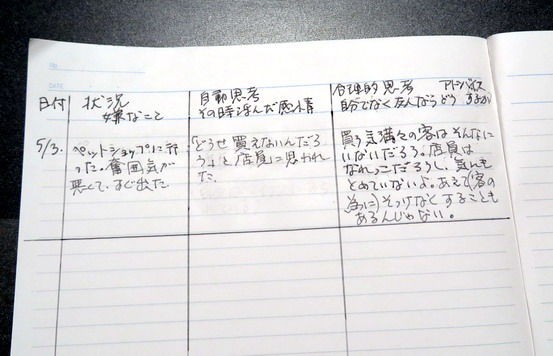 DATE
日付
状況
嫌なこと
自動思考
その時浮んだ感情
合理的思考 アドバイス
自分でなく友人ならどう するか
5/3.
ペットショップに行
った。雰囲気が
悪くて、すぐ出た
「どうせ買えないんだろ
う」と店員に思われ
た.
買う気満々の客はそんなに
いないだろう。店員は
なれっこだろうし、気にも
とめていないよ。あえて(客の
為に)そっけなくすることも
あるんじゃない。